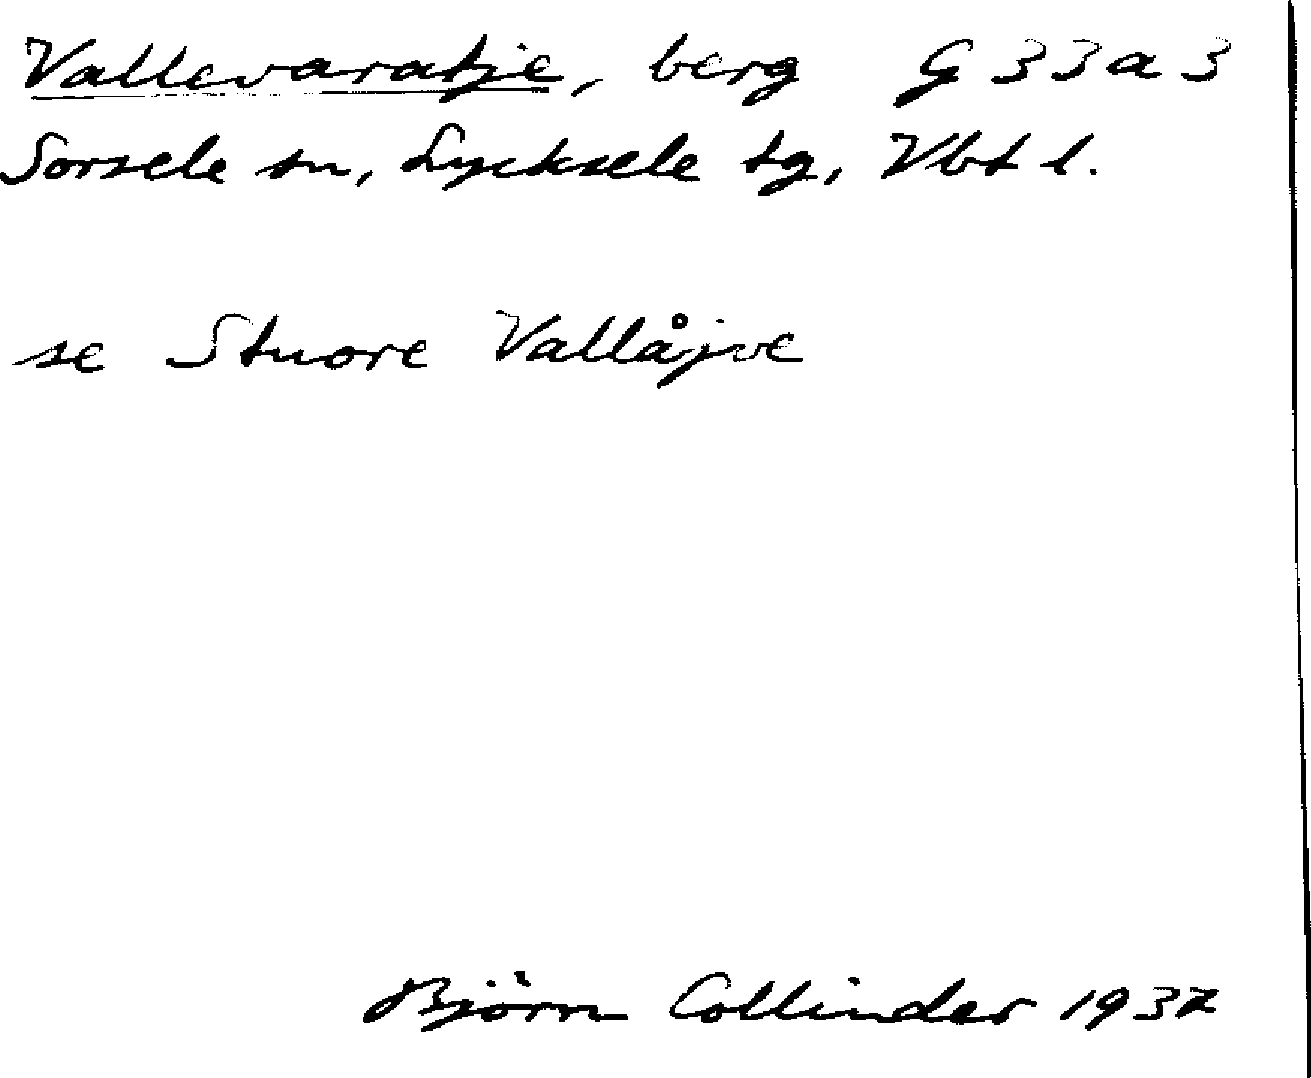 Vallevaratje, berg G 33 a 3
Sorsele sn, Lycksele tg, Vbt l.
se Stuore Vallåjve
Björn Collinder 1937